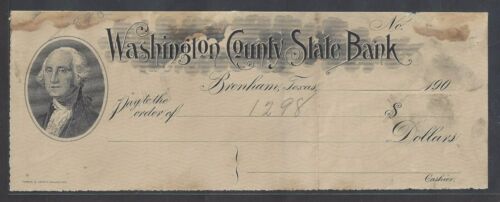 No.
Washington County State Bank
Brenham, Texas, 190
Pay to the
order of 1298 $
Dollars
Cashier.